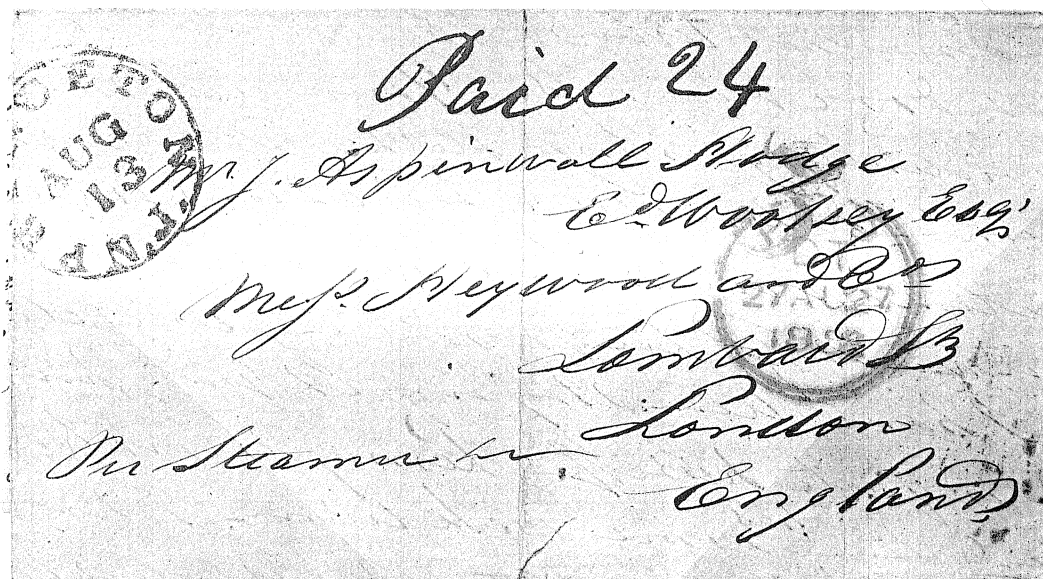 Paid 24
AUG
13
N.J.
Mr J. Aspinwall Hodge
Ed Woolsey Esqr
Messr. Heywood and Cos
27 AU 27
Lombard St
London
Per Steamer
England